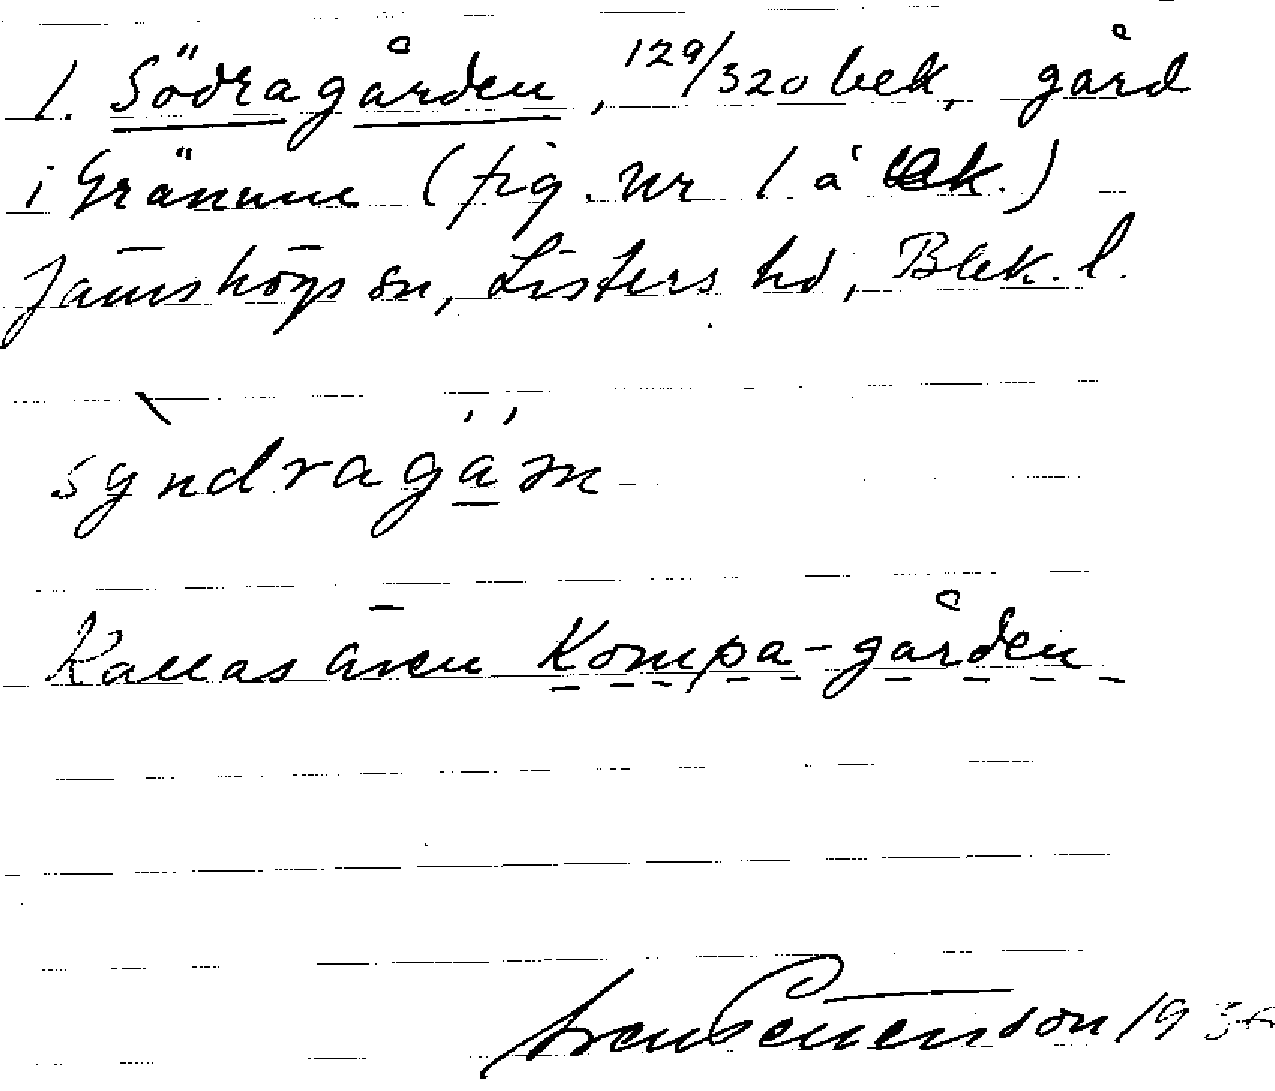 1. Södragården, 129/320 bek, gård
i Gränum (fig. nr 1 å ek.)
Jämshögs sn, Listers hd, Blek. l.
sỳndragä́rn
Kallas även Kompa-gården
Sven Benson 193